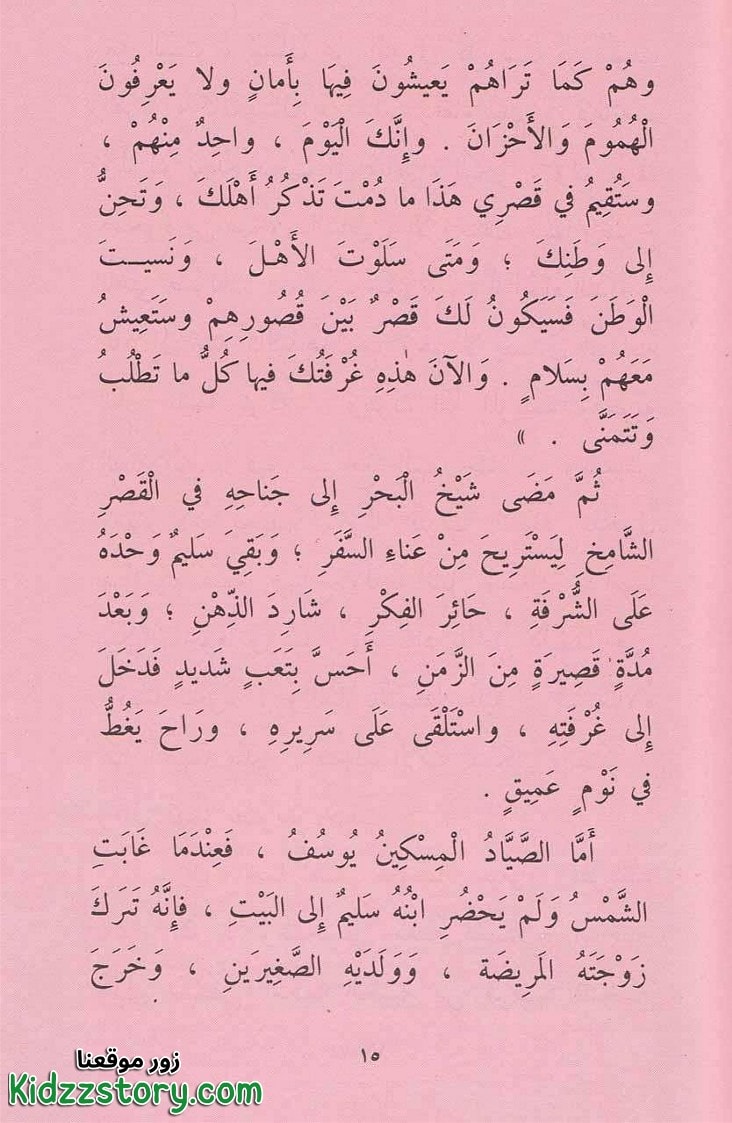 وهُمْ كَمَا تَرَاهُمْ يَعيشُونَ فِيهَا بِأَمانٍ ولا يَعْرِفُونَ
الْهُمُومَ وَالأَحْزَانَ . وإِنَّكَ الْيَوْمَ ، واحِدٌ مِنْهُمْ ،
وسَتُقِيمُ في قَصْرِي هَذَا ما دُمْتَ تَذْكُرُ أَهْلَكَ ، وَتَحِنُّ
إِلى وَطَنِكَ ؛ وَمَتَى سَلَوْتَ الأَهْلَ ، وَنَسيــتَ
الْوَطَنَ فَسَيَكُونُ لَكَ قَصْرٌ بَيْنَ قُصُورِهِمْ وسَتَعِيشُ
مَعَهُمْ بِسَلامٍ . وَالآنَ هٰذِهِ غُرْفَتُكَ فيها كُلُّ ما تَطْلُبُ
وَتَتَمَنَّى . »
ثُمَّ مَضَى شَيْخُ الْبَحْرِ إِلى جَناحِهِ في الْقَصْرِ
الشَّامِخِ لِيَسْتَرِيحَ مِنْ عَناءِ السَّفَرِ ؛ وَبَقِيَ سَليمٌ وَحْدَهُ
عَلَى الشُّرْفَةِ ، حَائِرَ الفِكْرِ ، شَارِدَ الذِّهْنِ ؛ وَبَعْدَ
مُدَّةٍ قَصِيرَةٍ مِنَ الزَّمَنِ ، أَحَسَّ بِتَعَبٍ شَديدٍ فَدَخَلَ
إِلى غُرْفَتِهِ ، واسْتَلْقَى عَلَى سَرِيرِهِ ، ورَاحَ يَغُطُّ
في نَوْمٍ عَمِيقٍ .
أَمَّا الصَّيَّادُ الْمِسْكِينُ يُوسُفُ ، فَعِنْدَمَا غَابَتِ
الشَّمْسُ وَلَمْ يَحْضُرِ ابْنُهُ سَليمٌ إِلى البَيْتِ ، فإِنَّهُ تَرَكَ
زَوْجَتَهُ المَرِيضَة ، وَوَلَدَيْهِ الصَّغِيرَينِ ، وَخَرَجَ
١٥
زور موقعنا
Kidzzstory.com